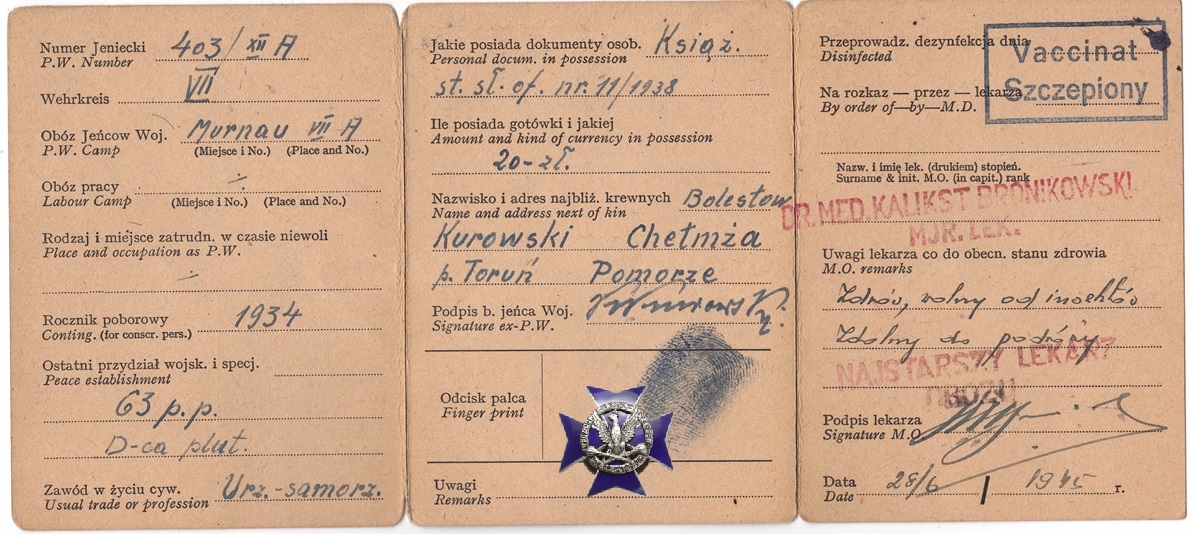 Numer Jeniecki 403/XII A
P.W. Number
VII
Wehrkreis
Obóz Jeńcow Woj. Murnau VII A
P.W. Camp (Miejsce i No.) (Place and No.)
Obóz pracy -/-
Labour Camp (Miejsce i No.) (Place and No.)
Rodzaj i miejsce zatrudn. w czasie niewoli
Place and occupation as P.W.
-/-
Rocznik poborowy 1934
Conting. (for conscr. pers.)
Ostatni przydział wojsk. i specj.
Peace establishment
63 p.p.
D-ca plut.
Zawód w życiu cyw. Urz.-samorz.
Usual trade or profession
Jakie posiada dokumenty osob. Książ.
Personal docum. in possession
st. sł. of. nr. 11/1938
Ile posiada gotówki i jakiej
Amount and kind of currency in possession
20-zł.
Nazwisko i adres najbliż. krewnych Bolesław
Name and address next of kin
Kurowski Chełmża
p. Toruń Pomorze
Podpis b. jeńca Woj.
Signature ex-P.W.
Odcisk palca
Finger print
Uwagi
Remarks
Przeprowadz. dezynfekcja dnia
Disinfected
Vaccinat
Szczepiony
Na rozkaz — przez — lekarza
By order of—by—M.D.
Nazw. i imię lek. (drukiem) stopień.
Surname & init. M.O. (in capit.) rank
DR. MED. KALIKST BRONIKOWSKI
MJR. LEK.
Uwagi lekarza co do obecn. stanu zdrowia
M.O. remarks
Zdrów, wolny od insektów
Zdolny do podróży
NAJSTARSZY LEKARZ
OBOZU
Podpis lekarza
Signature M.O.
Data 28/6 / 1945 r.
Date